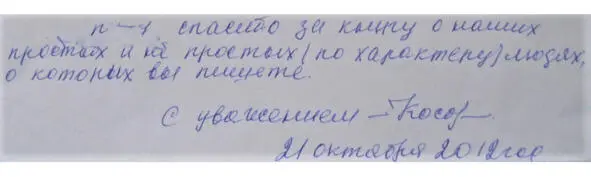 спасибо за книгу о наших
простых и не простых (по характеру) людях,
о которых вы пишете.
С уважением
21 октября 2012 год